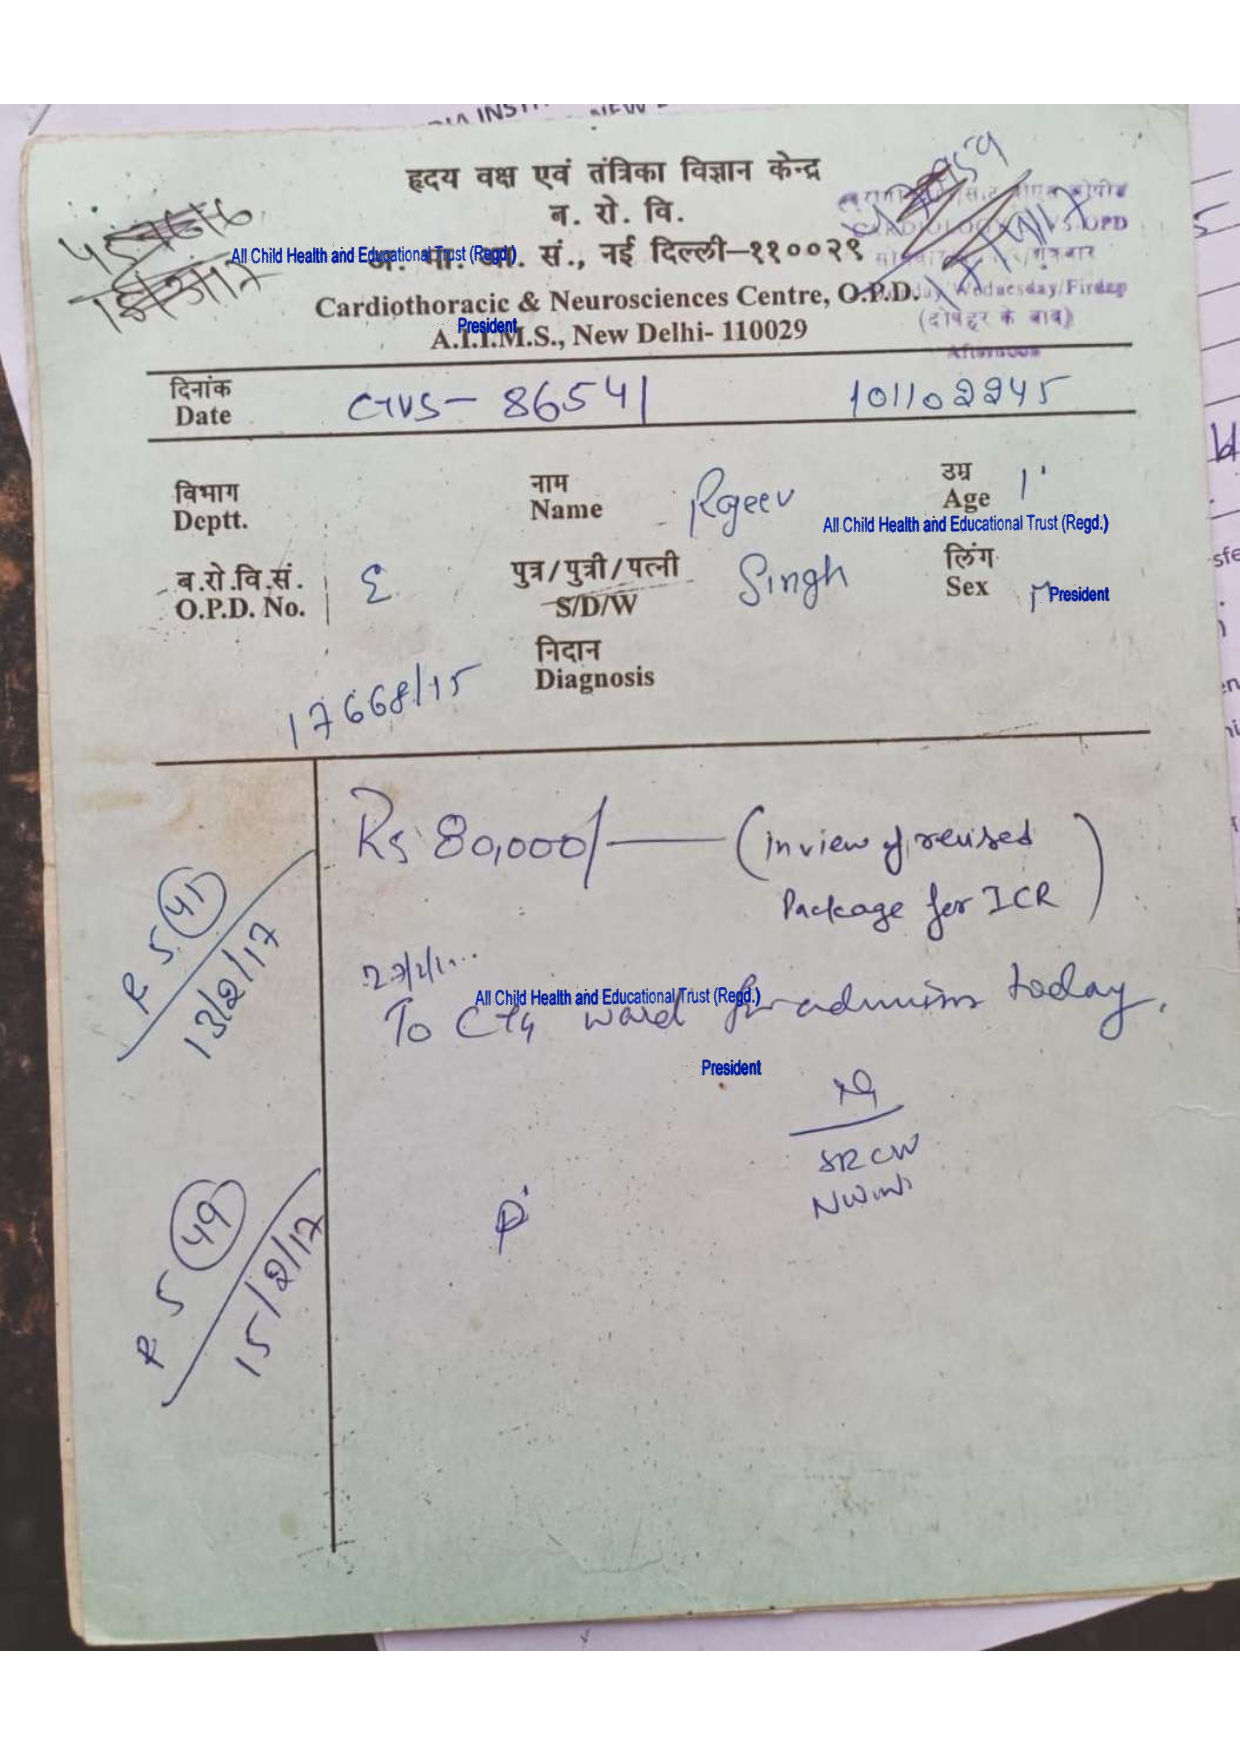 हृदय वक्ष एवं तंत्रिका विज्ञान केन्द्र
ब. रो. वि.
All Child Health and Educational Trust (Regd.)
अ. भा. आ. सं., नई दिल्ली–११००२९
Cardiothoracic & Neurosciences Centre, O.P.D.
President
A.I.I.M.S., New Delhi- 110029
OPD
Wednesday/Firday
(दोपहर के बाद)
Afternoon
दिनांक
Date
CTVS- 86541
101102245
विभाग
Deptt.
नाम
Name
Rajeev
उम्र
Age
All Child Health and Educational Trust (Regd.)
ब.रो.वि.सं.
O.P.D. No.
E
पुत्र/पुत्री/पत्नी
S/D/W
Singh
लिंग
Sex
President
निदान
Diagnosis
17668/15
Rs 80,000/— (In view of revised
Package for ICR)
R 5 41
13/2/17
All Child Health and Educational Trust (Regd.)
To ward for today.
President
R 5 49
15/2/17